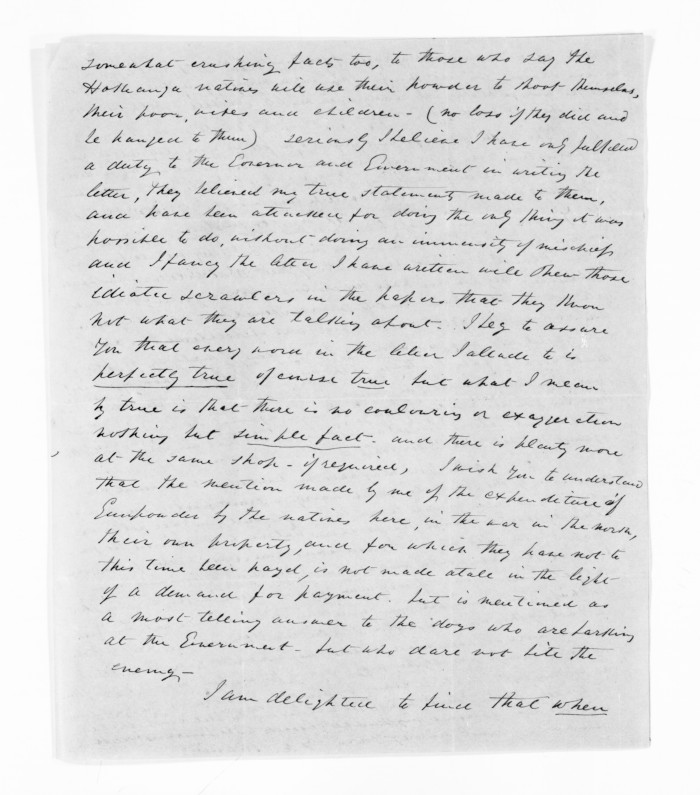 somewhat crushing facts too, to those who say the
Hokianga natives will use their powder to shoot themselves,
their poor, wives and children - (no loss if they did and
be hanged to them) seriously I believe I have only fulfilled
a duty to the Governor and Government in writing the
letter, they believed my true statements made to them,
and have been attacked for doing the only thing it was
possible to do, without doing an immensity of mischief
and I fancy the letter I have written will shew those
idiotic scrawlers in the papers that they know
not what they are talking about. I beg to assure
you that every word in the letter I allude to is
perfectly true of course true but what I mean
by true is that there is no coulouring or exaggeration
nothing but simple fact. and there is plenty more
at the same shop - if required, I wish you to understand
that the mention made by me of the expenditure of
Gunpowder by the natives here, in the war in the north,
their own property, and for which they have not to
this time been payd, is not made atale in the light
of a demand for payment. but is mentioned as
a most telling answer to the dogs who are barking
at the Government - but who dare not bite the
enemy -
I am delighted to find that when